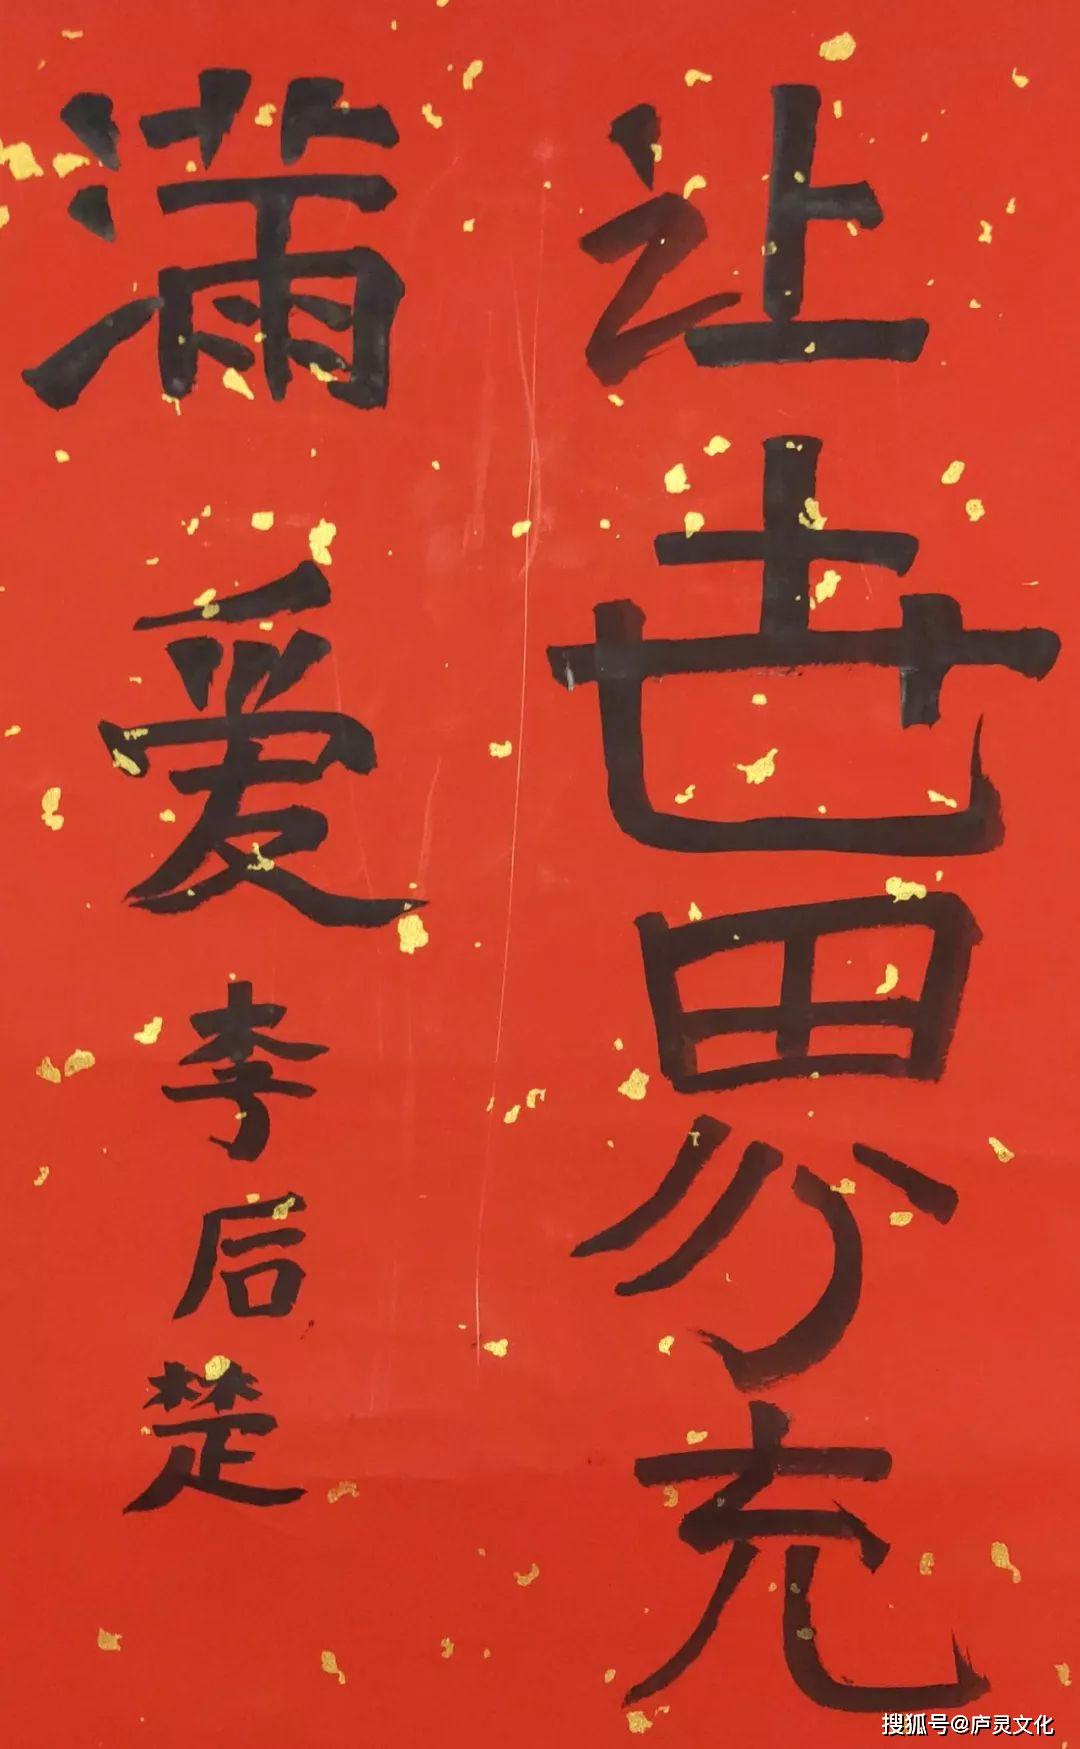 让世界充
满爱李后楚
搜狐号@庐灵文化